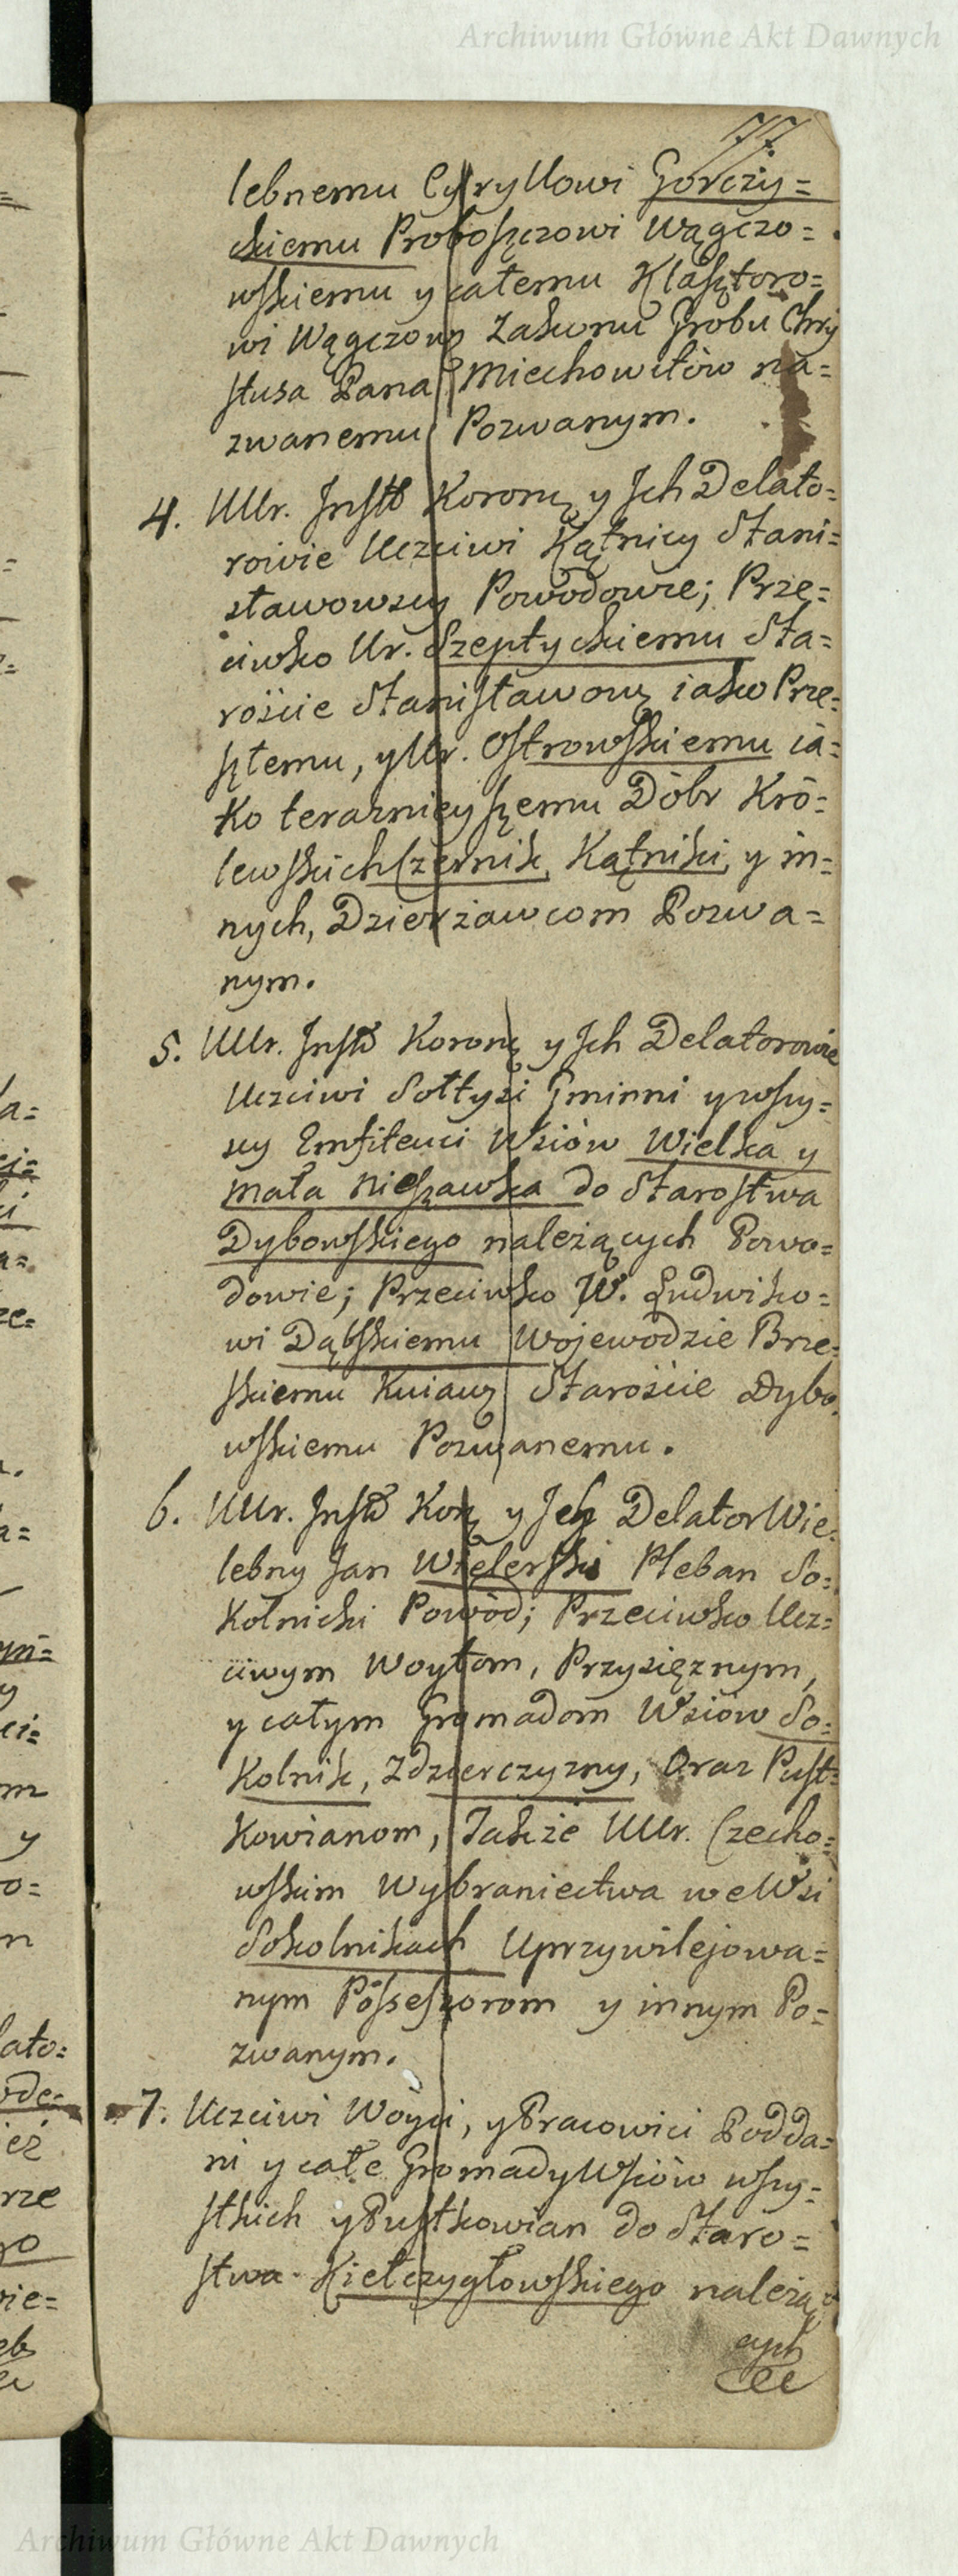 Archiwum Główne Akt Dawnych
77.
lebnemu Cyryllowi Gorczy=
ckiemu Proboszczowi Wągczo=
wskiemu y całemu Klasztoro=
wi Wągczow Zakonu Grobu Chry
stusa Pana Miechowitów na=
zwanemu Pozwanym.
4. UUr. Instt Koronę y Jch Delato=
rowie Uczciwi Kątnicy Stani=
sławowscy Powodowie; Prze=
ciwko Ur. Szeptyckiemu Sta=
rościе Stanisławow iako Prze=
szłemu, y Ur. Ostrowskiemu ia=
ko teraznieyszemu Dóbr Kró=
lewskich Czernik, Kątniki, y in=
nych, Dzierżawcom Pozwa=
nym.
5. UUr. Instt Koronę y Jch Delatorowie
Uczciwi Sołtysi Gminni y wszy=
scy Emfiteuci Wsiów Wielka y
Mała Nieszawka do Starostwa
Dybowskiego należących Powo=
dowie; Przeciwko W. Ludwiko=
wi Dąbskiemu Wojewodzie Brze=
skiemu Kuiaw Staroście Dybo
wskiemu Pozwanemu.
6. UUr. Instt Kor y Jeg Delator Wie=
lebny Jan Więlerski Pleban So=
kolnicki Powód; Przeciwko Ucz=
ciwym Woytom, Przysięznym,
y całym Gromadom Wsiów So=
kolnik, Zdzierczyzny, Oraz Pust=
kowianom, Także UUr. Czecho=
wskim Wybraniectwa we Wsi
Sokolnikach Uprzywilejowa=
nym Possessorom y innym Po=
zwanym.
7. Uczciwi Wóyci, y Pracowici Podda=
ni y całe Gromady Wsiów wszy=
stkich y Pustkowian do Staro=
stwa Kiełczygłowskiego należą=
cych
Archiwum Główne Akt Dawnych